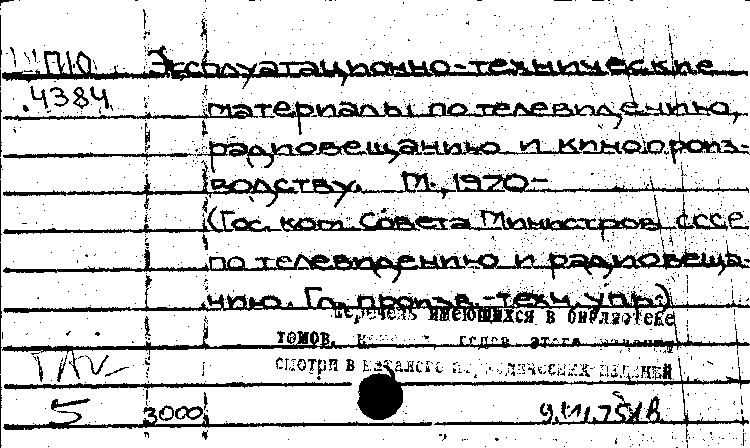 П10 Эксплуатационно-технические
.4384 материалы по телевидению,
радиовещанию и кинопроиз-
водству. М., 1970-
(Гос. ком. Совета Министров СССР
по телевидению и радиовеща-
нию. Гл. произв.-техн. упр.)
Перечень имеющихся в библиотеке
томов, годов этого издания
смотри в каталоге периодических изданий
5 3000